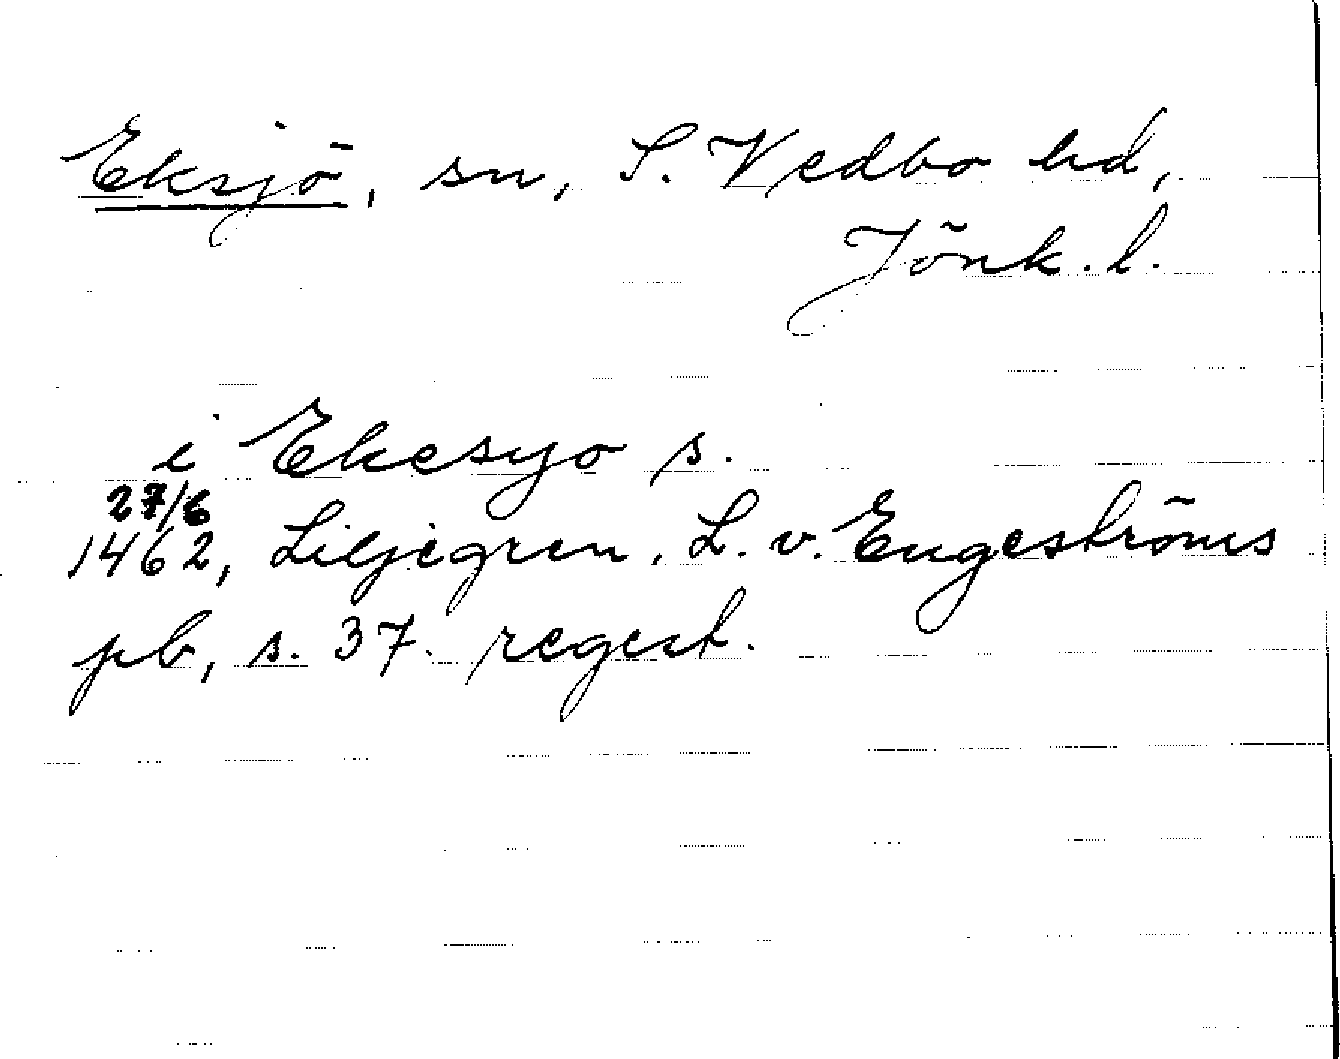 Eksjö, sn, S. Vedbo hd,
Jönk. l.
i Ekesyo s.
27/6
1462, Liljegren. L. v. Engeströms
pb, s. 37. regest.